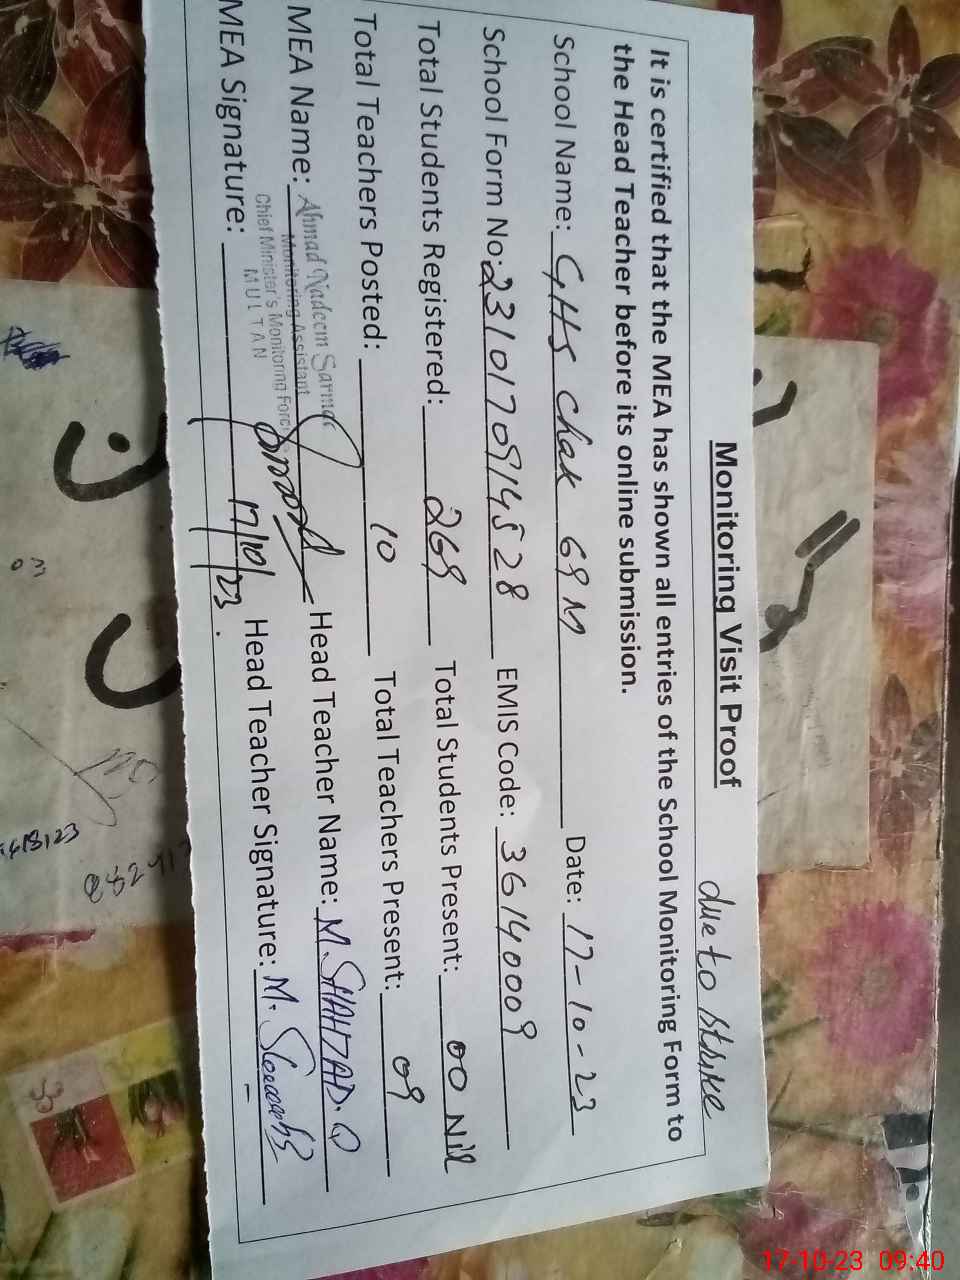 Monitoring Visit Proof
due to strike
It is certified that the MEA has shown all entries of the School Monitoring Form to
the Head Teacher before its online submission.
School Name: GHS Chak 69 M Date: 17-10-23
School Form No: 2310170914528 EMIS Code: 36140009
Total Students Registered: 269 Total Students Present: 00 Nil
Total Teachers Posted: 10 Total Teachers Present: 09
MEA Name: Ahmad Nadeem Head Teacher Name: M. SHAHZAD. Q
Monitoring Assistant
Chief Minister's Monitoring Force
MULTAN
MEA Signature: 17/10/23. Head Teacher Signature: M.
03
17-10-23 09:40